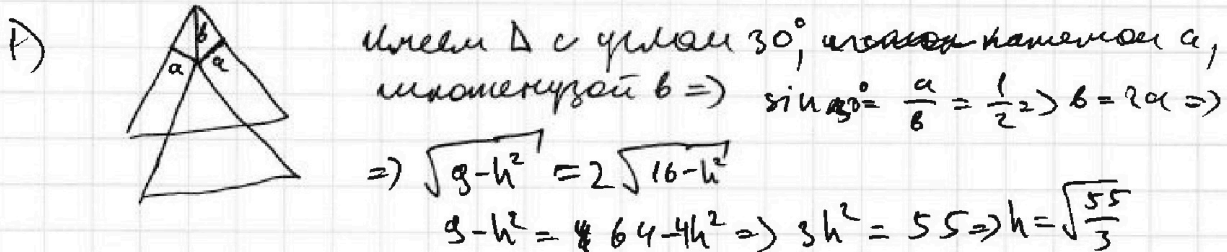 1)
b
a a
Имеем Δ с углом 30°, катетом a,
гипотенузой b => sin 30° = a/b = 1/2 => b = 2a =>
=> √(9-h²) = 2√(16-h²)
9-h² = 64-4h² => 3h² = 55 => h = √(55/3)